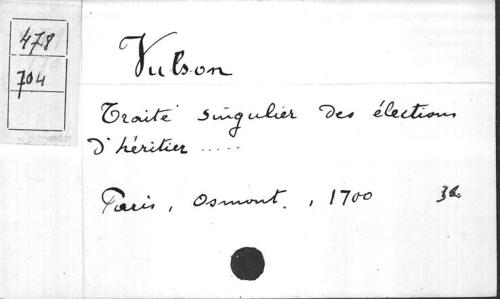 478
704
Vulson
Traité singulier des élections
d'héritier .....
Paris, Osmont., 1700